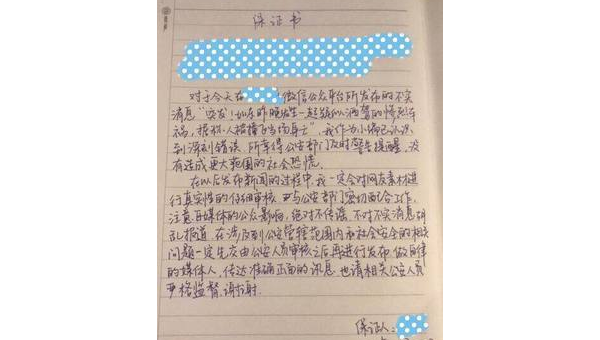 保证书
对于今天在 微信公众平台所发布的不实
消息“突发!如东昨晚发生一起疑似酒驾的惨烈车
祸,据称人被撞了当场身亡”,我作为小编已认识
到深刻错误,所幸得公安部门及时警告提醒,没
有造成更大范围的社会恐慌。
在以后发布新闻的过程中,我一定会对网友素材进
行真实性的仔细审核,并与公安部门密切配合工作,
注意自媒体的公众影响,绝对不传谣,不对不实消息胡
乱报道,在涉及到公安管辖范围内和社会安全的相关
问题一定先交由公安人员审核之后再进行发布,做自律
的媒体人,传达准确正面的讯息,也请相关公安人员
严格监督,谢谢.
保证人: